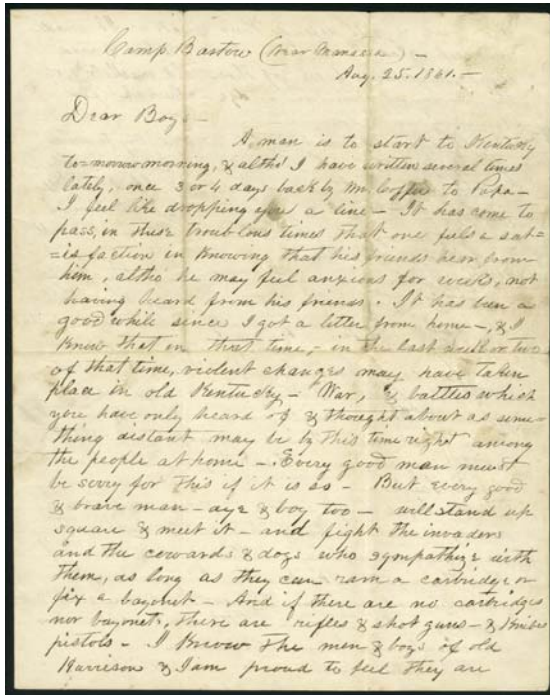 Camp Bartow (near Manassas) –
Aug. 25. 1861. –
Dear Boy –
A man is to start to Kentucky
to=morrow morning, & altho' I have written several times
lately, once 3 or 4 days back by Mr. Coffee to Papa –
I feel like dropping you a line – It has come to
pass, in these troublous times that one feels a sat=
=isfaction in knowing that his friends hear from
him, altho' he may feel anxious for weeks, not
having heard from his friends. It has been a
good while since I got a letter from home –, & I
know that in that time, – in the last week or two
of that time, violent changes may have taken
place in old Kentucky – War, & battles which
you have only heard of & thought about as some-
thing distant may be by this time right among
the people at home –. Every good man must
be sorry for this if it is so – But every good
& brave man – aye & boy too – will stand up
square & meet it – and fight the invaders
and the cowards & dogs who sympathize with
them, as long as they can ram a cartridge or
fix a bayonet – And if there are no cartridges
nor bayonets, there are rifles & shot guns – & Knives
pistols – I know the men & boys of old
Harrison & I am proud to feel they are